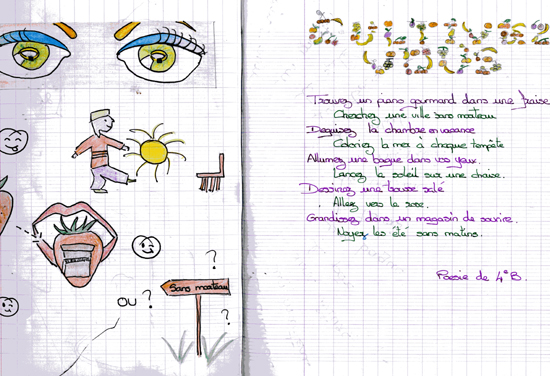 ?
Sans manteau
OU ?
?
CULTIVEZ
VOUS
Trouvez un piano gourmand dans une fraise
Cherchez une ville sans manteau
Deguisez la chambre en vacance
Coloriez la mer à chaque tempête
Allumez une bague dans vos yeux.
Lancez le soleil sur une chaise.
Dessinez une trousse salé
Allez vers la rose.
Grandissez dans un magasin de sourire.
Noyez les été sans matins.
Poésie de 4°B.